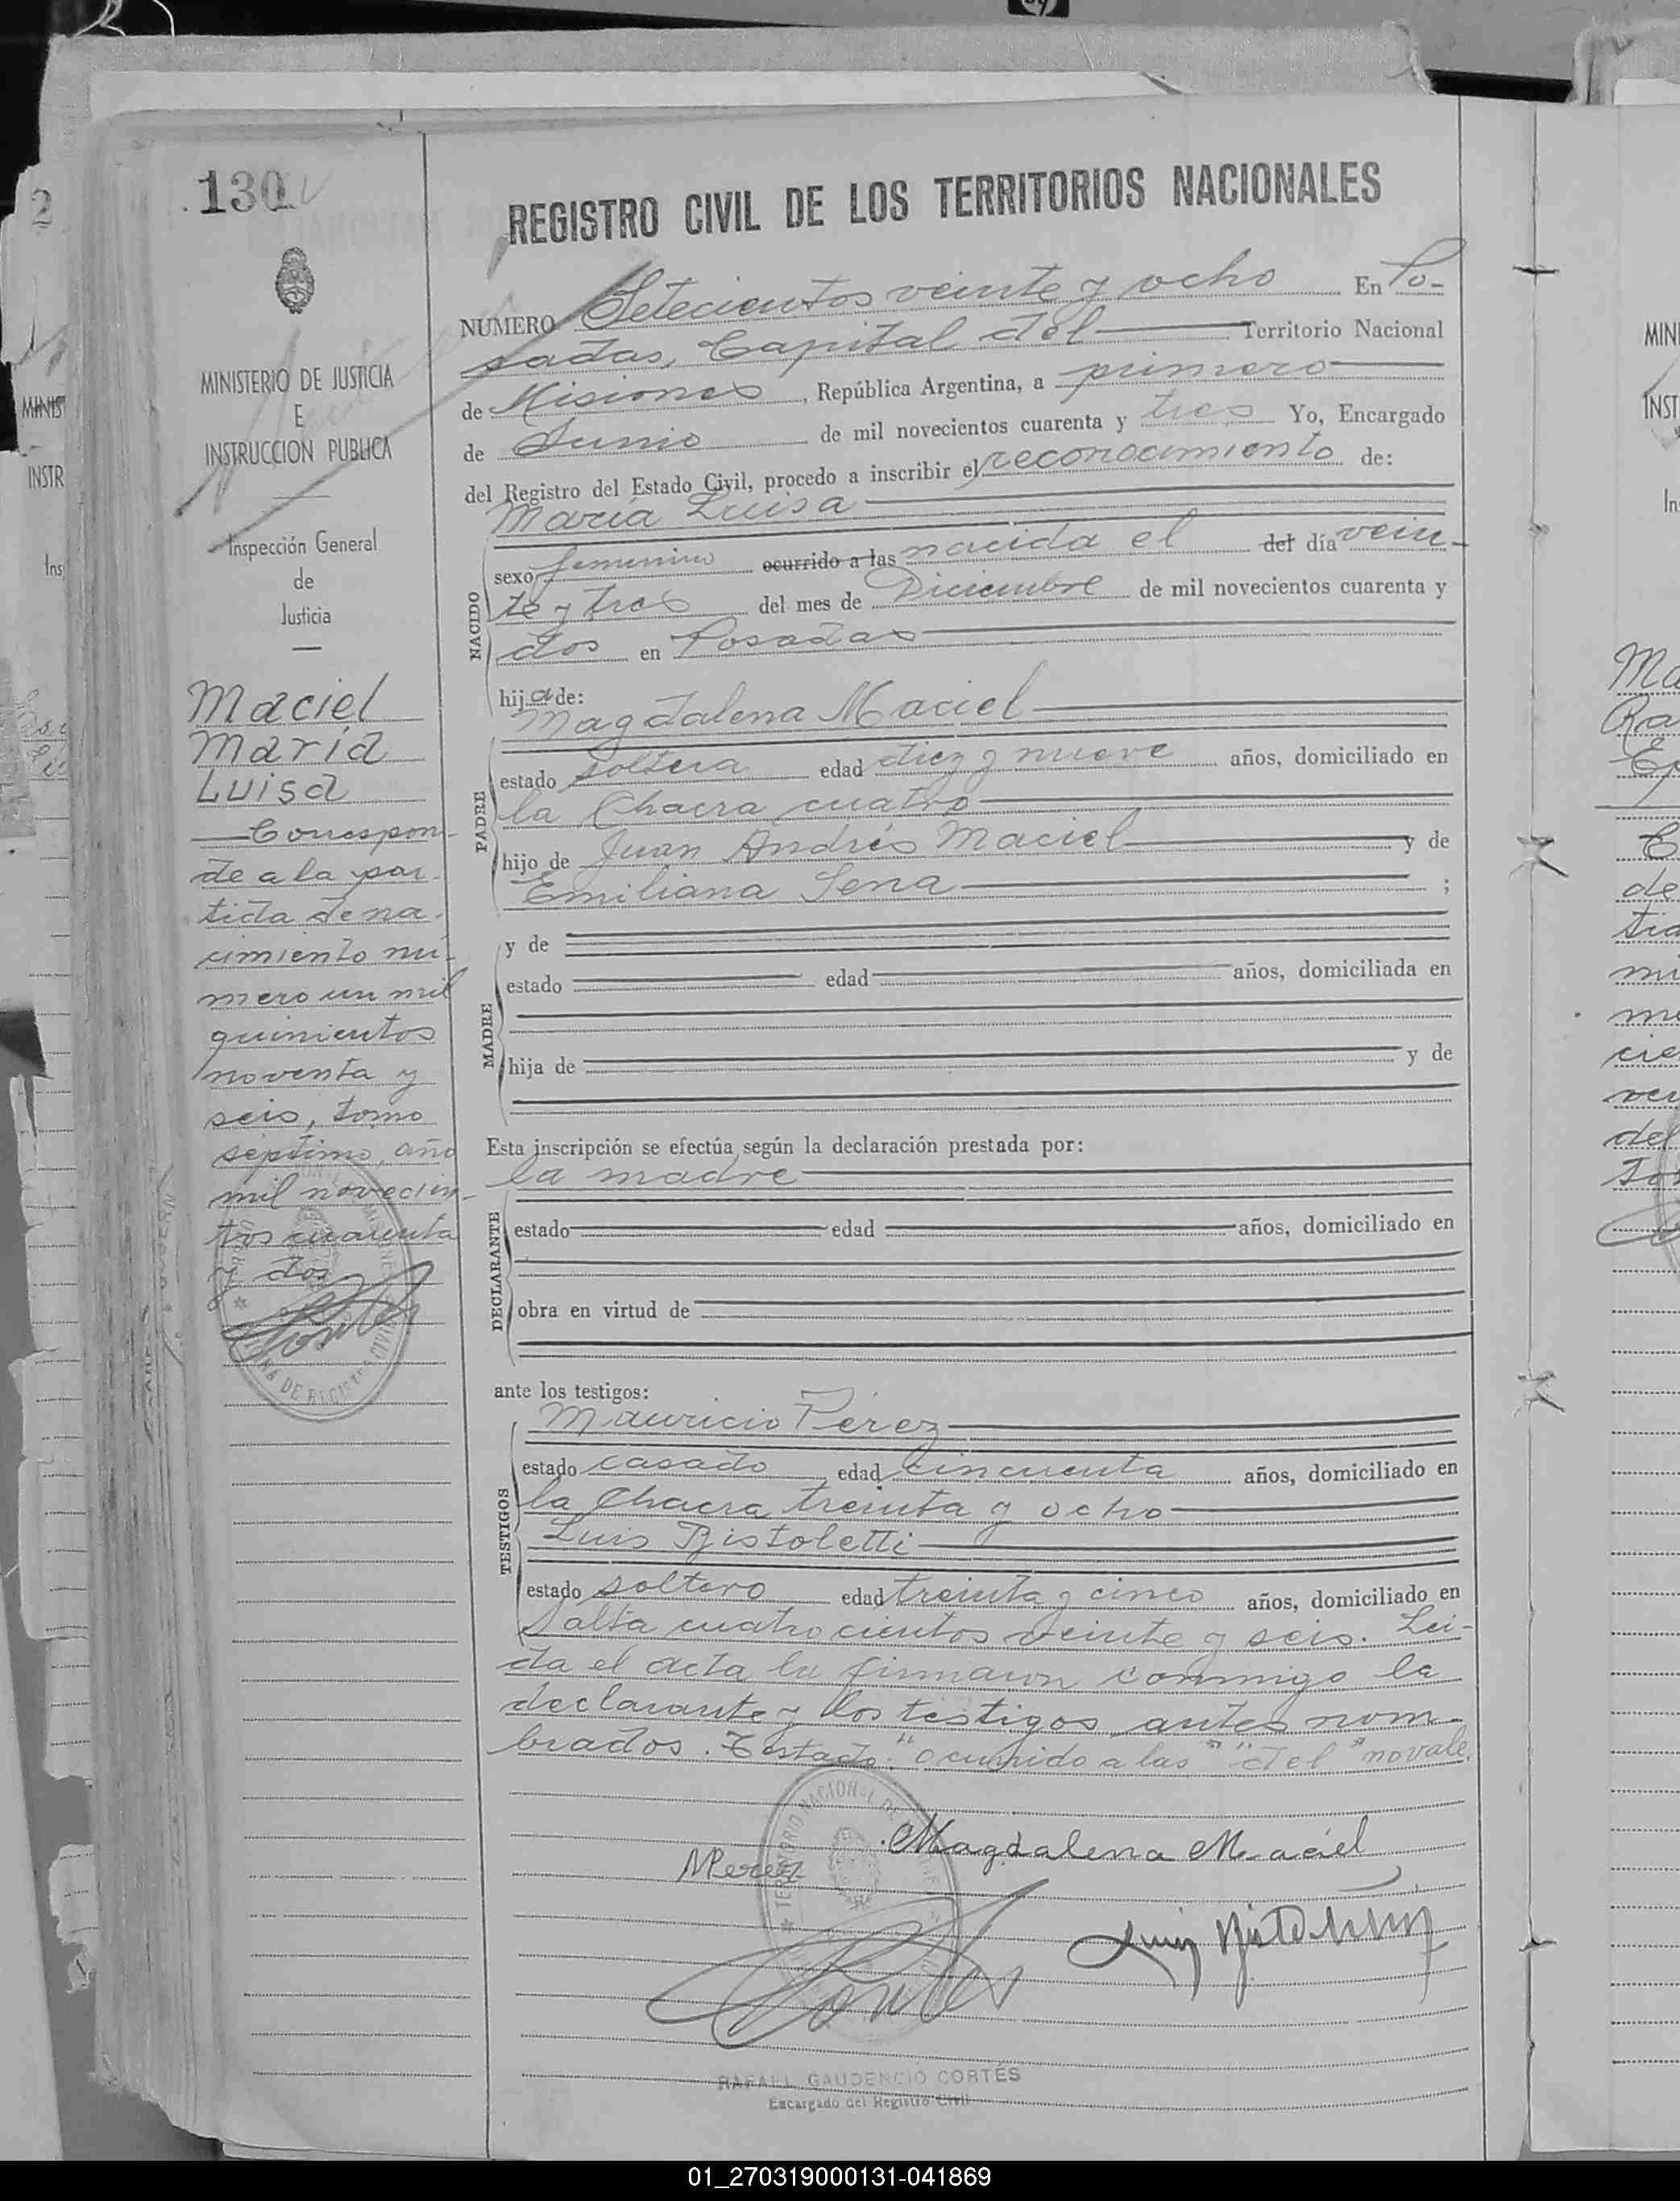 130
REGISTRO CIVIL DE LOS TERRITORIOS NACIONALES
MINISTERIO DE JUSTICIA
E
INSTRUCCION PUBLICA
Inspección General
de
Justicia
Maciel
María
Luisa
Correspon-
de a la par-
tida de na-
cimiento nú-
mero un mil
quinientos
noventa y
seis, tomo
séptimo, año
mil novecien-
tos cuarenta
y dos
NUMERO Setecientos veinte y ocho En Po-
sadas, Capital del Territorio Nacional
de Misiones, República Argentina, a primero
de Junio de mil novecientos cuarenta y tres Yo, Encargado
del Registro del Estado Civil, procedo a inscribir el reconocimiento de:
María Luisa
NACIDO
sexo femenino ocurrido a las nacida el del día vein-
te y tres del mes de Diciembre de mil novecientos cuarenta y
dos en Posadas
hija de:
Magdalena Maciel
PADRE
estado soltera edad diez y nueve años, domiciliado en
la Chacra cuatro
hijo de Juan Andrés Maciel y de
Emiliana Sena ;
MADRE
y de
estado edad años, domiciliada en
hija de y de
Esta inscripción se efectúa según la declaración prestada por:
la madre
DECLARANTE
estado edad años, domiciliado en
obra en virtud de
ante los testigos:
TESTIGOS
Mauricio Pérez
estado casado edad cincuenta años, domiciliado en
la Chacra treinta y ocho
Luis Bistoletti
estado soltero edad treinta y cinco años, domiciliado en
Salta cuatrocientos veinte y seis. Leí-
da el acta la firmaron conmigo la
declarante y los testigos antes nom-
brados. Testado: "ocurrido a las" "del" no vale.
Magdalena Maciel
MPerez
RAFAEL GAUDENCIO CORTÉS
Encargado del Registro Civil
01_270319000131-041869